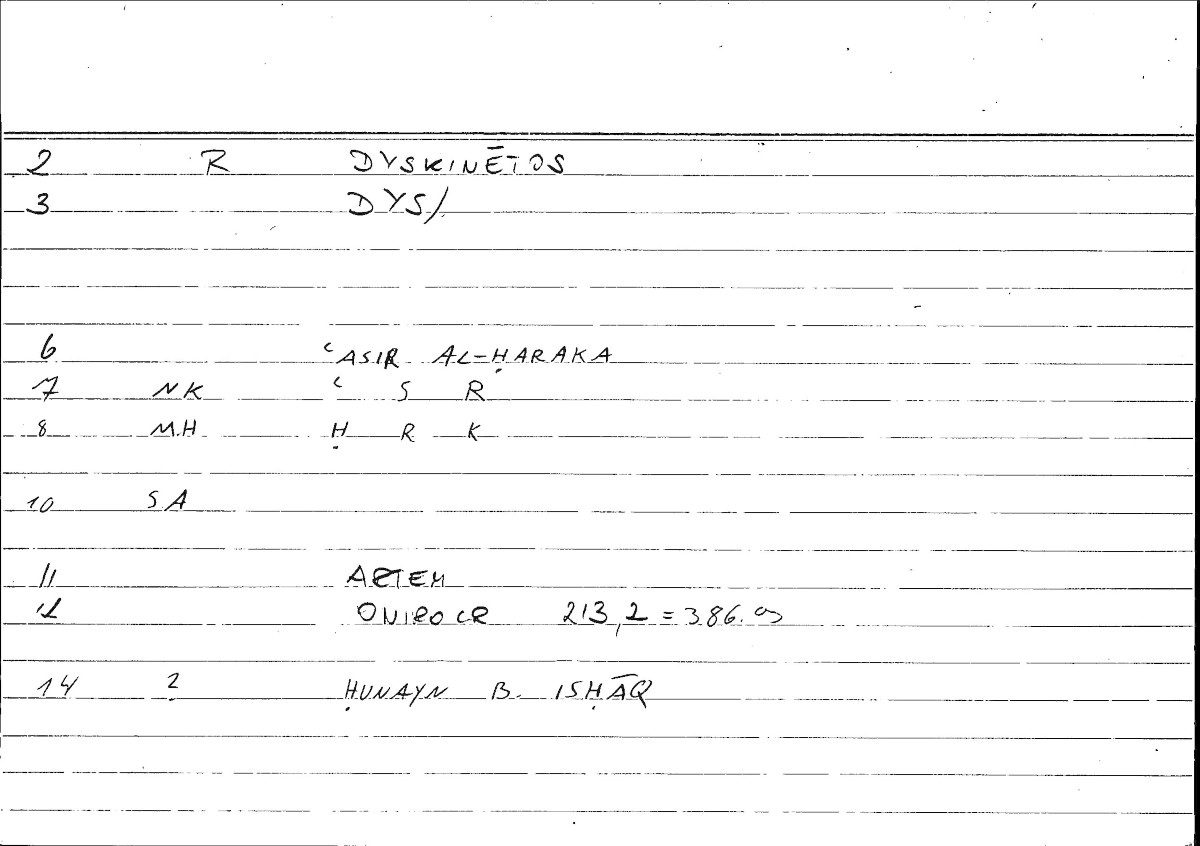 2 R DYSKINĒTOS
3 DYS/
6 ʿASIR AL-ḤARAKA
7 NK ʿ S R
8 M.H Ḥ R K
10 SA
11 ARTEM
12 ONIROCR 213,2 = 386.
14 ? ḤUNAYN B. ISḤĀQ